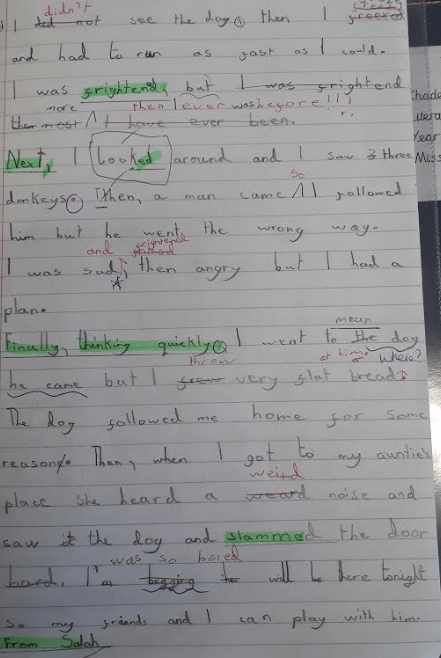 didn't
I did not see the dog, then I froze freezed
and had to run as fast as I could.
I was frightend, but I was frightend
more then I ever was before!!!
the most I have ever been.
Next, I looked around and I saw 3 three
donkeys. Then, a man came so I followed
him but he went the wrong way.
and frightened
I was sad, then angry but I had a
plan.
mean
Finally, thinking quickly, I went to the dog
threw at him where?
he came but I very flat bread.
The dog followed me home for some
reason. Then, when I got to my auntie's
weird
place she heard a weard noise and
saw it the dog and slammed the door
was so bored
hard. I begging to will be here tonight
so my friends and I can play with him.
From Salah